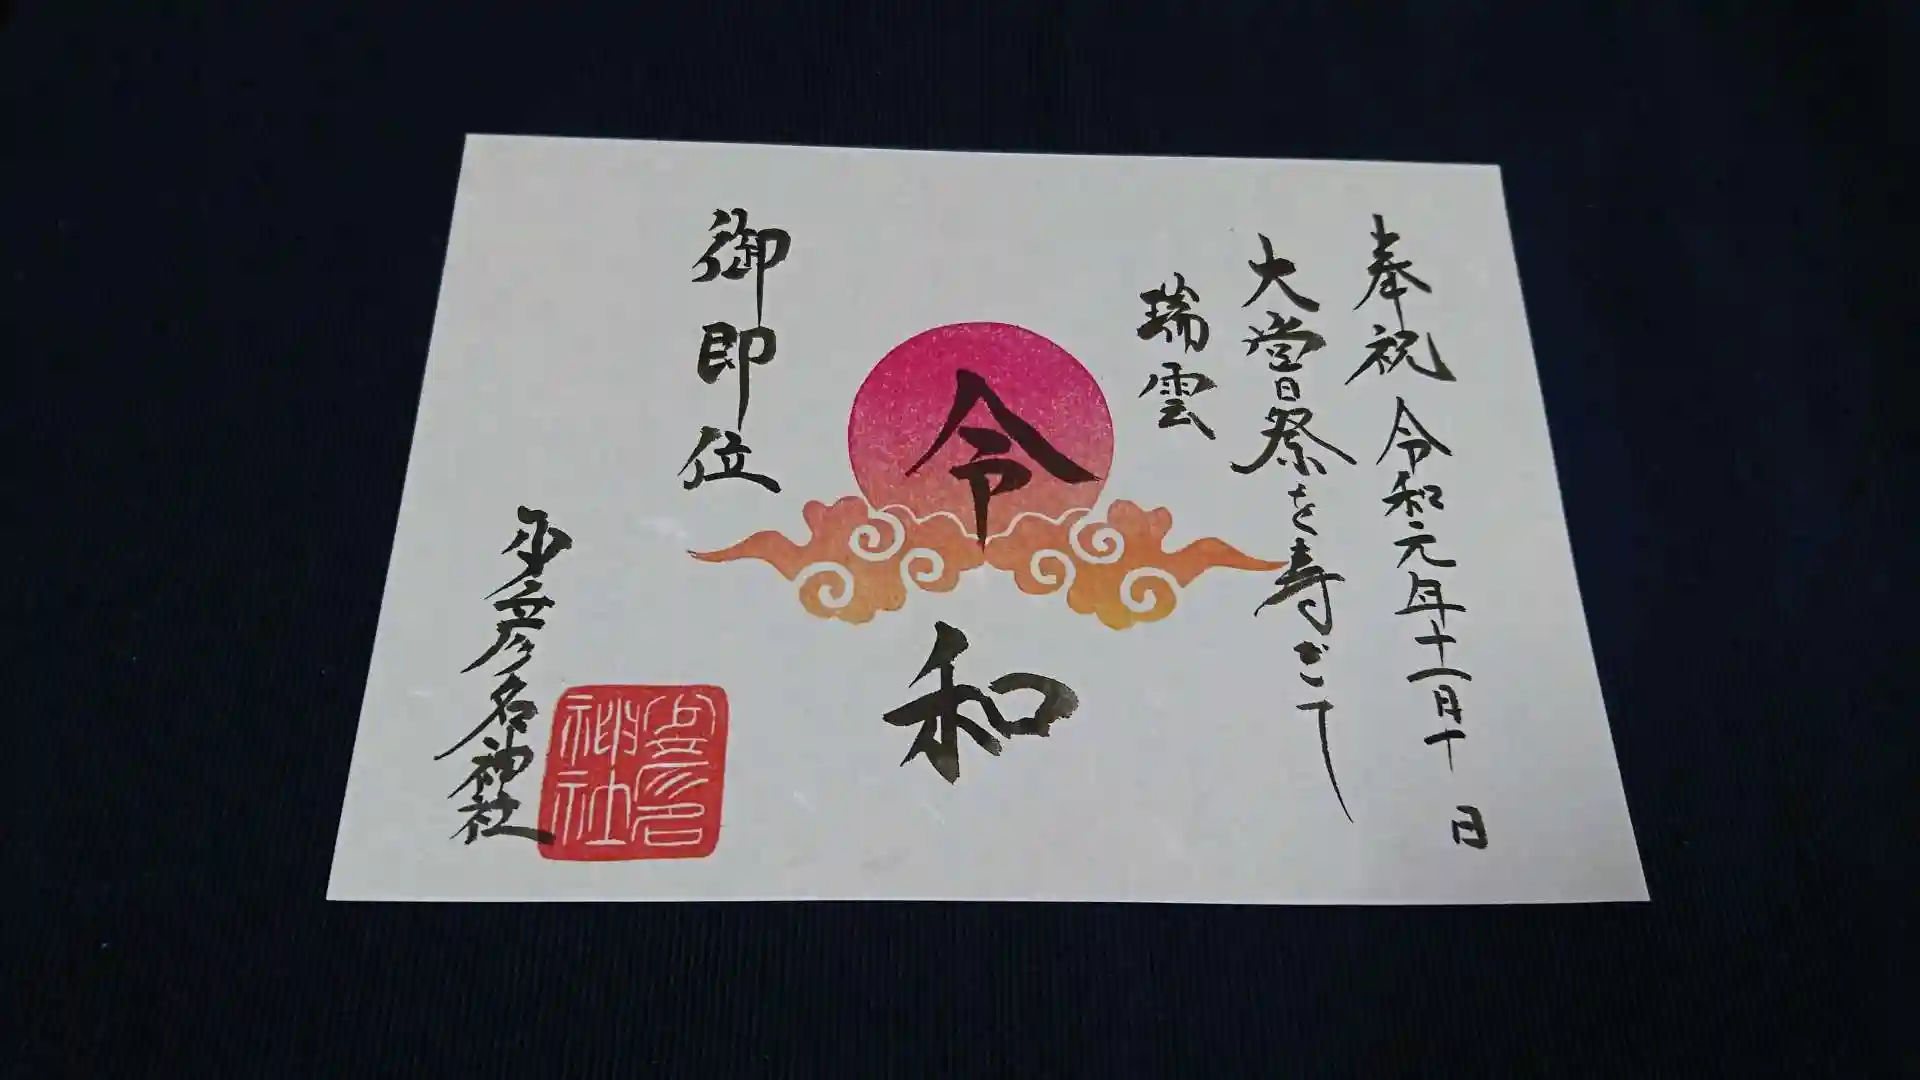 奉祝 令和元年十一月十 日
大嘗祭を寿ぎて
瑞雲
令和
御即位
少彦名神社
神社